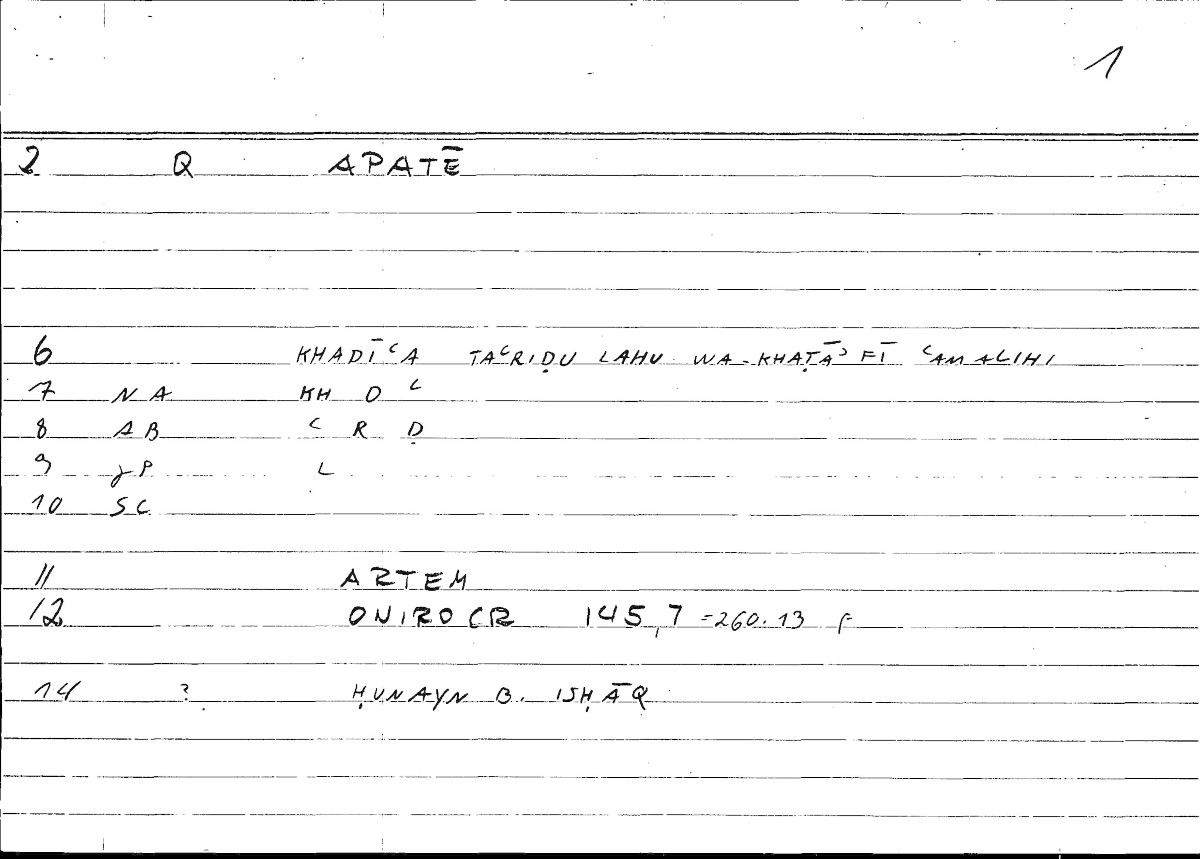 1
2 Q APATĒ
6 KHADĪʿA TAʿRIḌU LAHU WA-KHAṬĀʾ FĪ ʿAMALIHI
7 NA KH D ʿ
8 AB ʿ R Ḍ
9 JP L
10 SC
11 ARTEM
12 ONIROCR 145,7 =260.13 f
14 ? ḤUNAYN B. ISḤĀQ